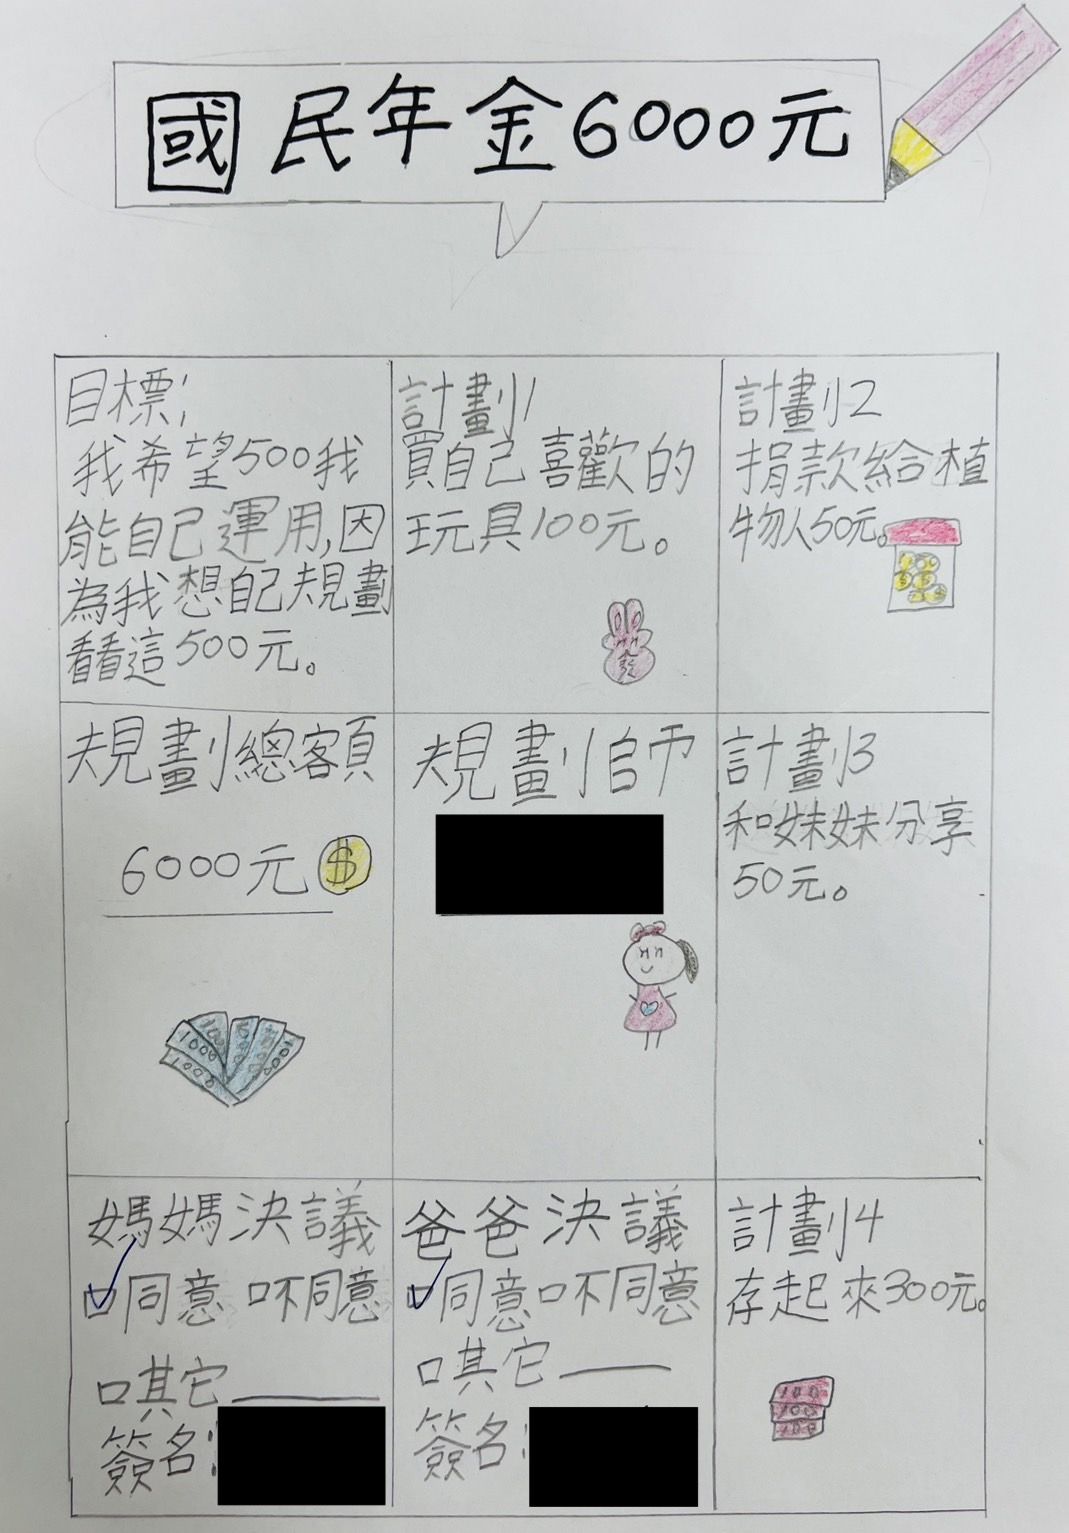 國民年金6000元
目標:
我希望500我
能自己運用,因
為我想自己規劃
看看這500元。
計劃1
買自己喜歡的
玩具100元。
計劃2
捐款給植
物人50元。
規劃總額
6000元
$
1000
1000
規劃師
計劃3
和妹妹分享
50元。
媽媽決議
☑同意 口不同意
口其它
簽名:
爸爸決議
☑同意口不同意
口其它
簽名:
計劃4
存起來300元。
100
100
100